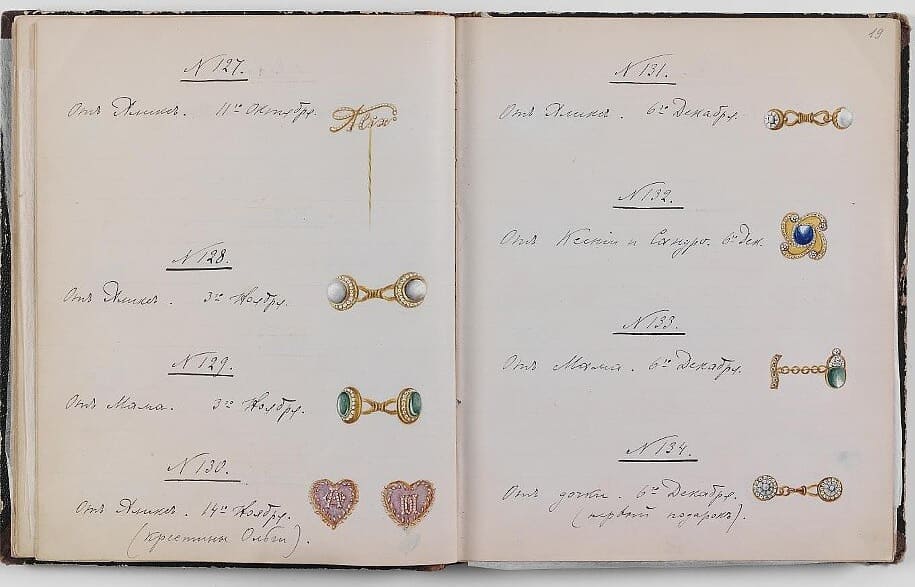 N 127.
Отъ Аликсъ. 11го Октября.
Alix
N 128.
Отъ Аликсъ. 3го Ноября.
N 129.
Отъ Мама. 3го Ноября.
N 130.
Отъ Аликсъ. 14го Ноября.
(крестины Ольги).
19
N 131.
Отъ Аликсъ. 6го Декабря.
N 132.
Отъ Ксеніи и Сандро. 6го Дек.
N 133.
Отъ Мама. 6го Декабря.
N 134.
Отъ дочки. 6го Декабря.
(первый подарокъ).